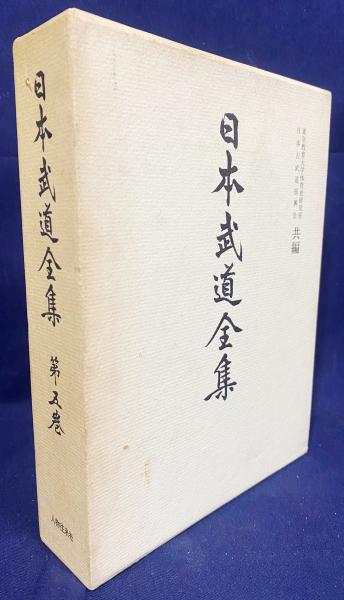 日本武道全集
東京教育大学体育史研究室
日本古武道振興会
共編
日本武道全集
第五巻
人物往来社